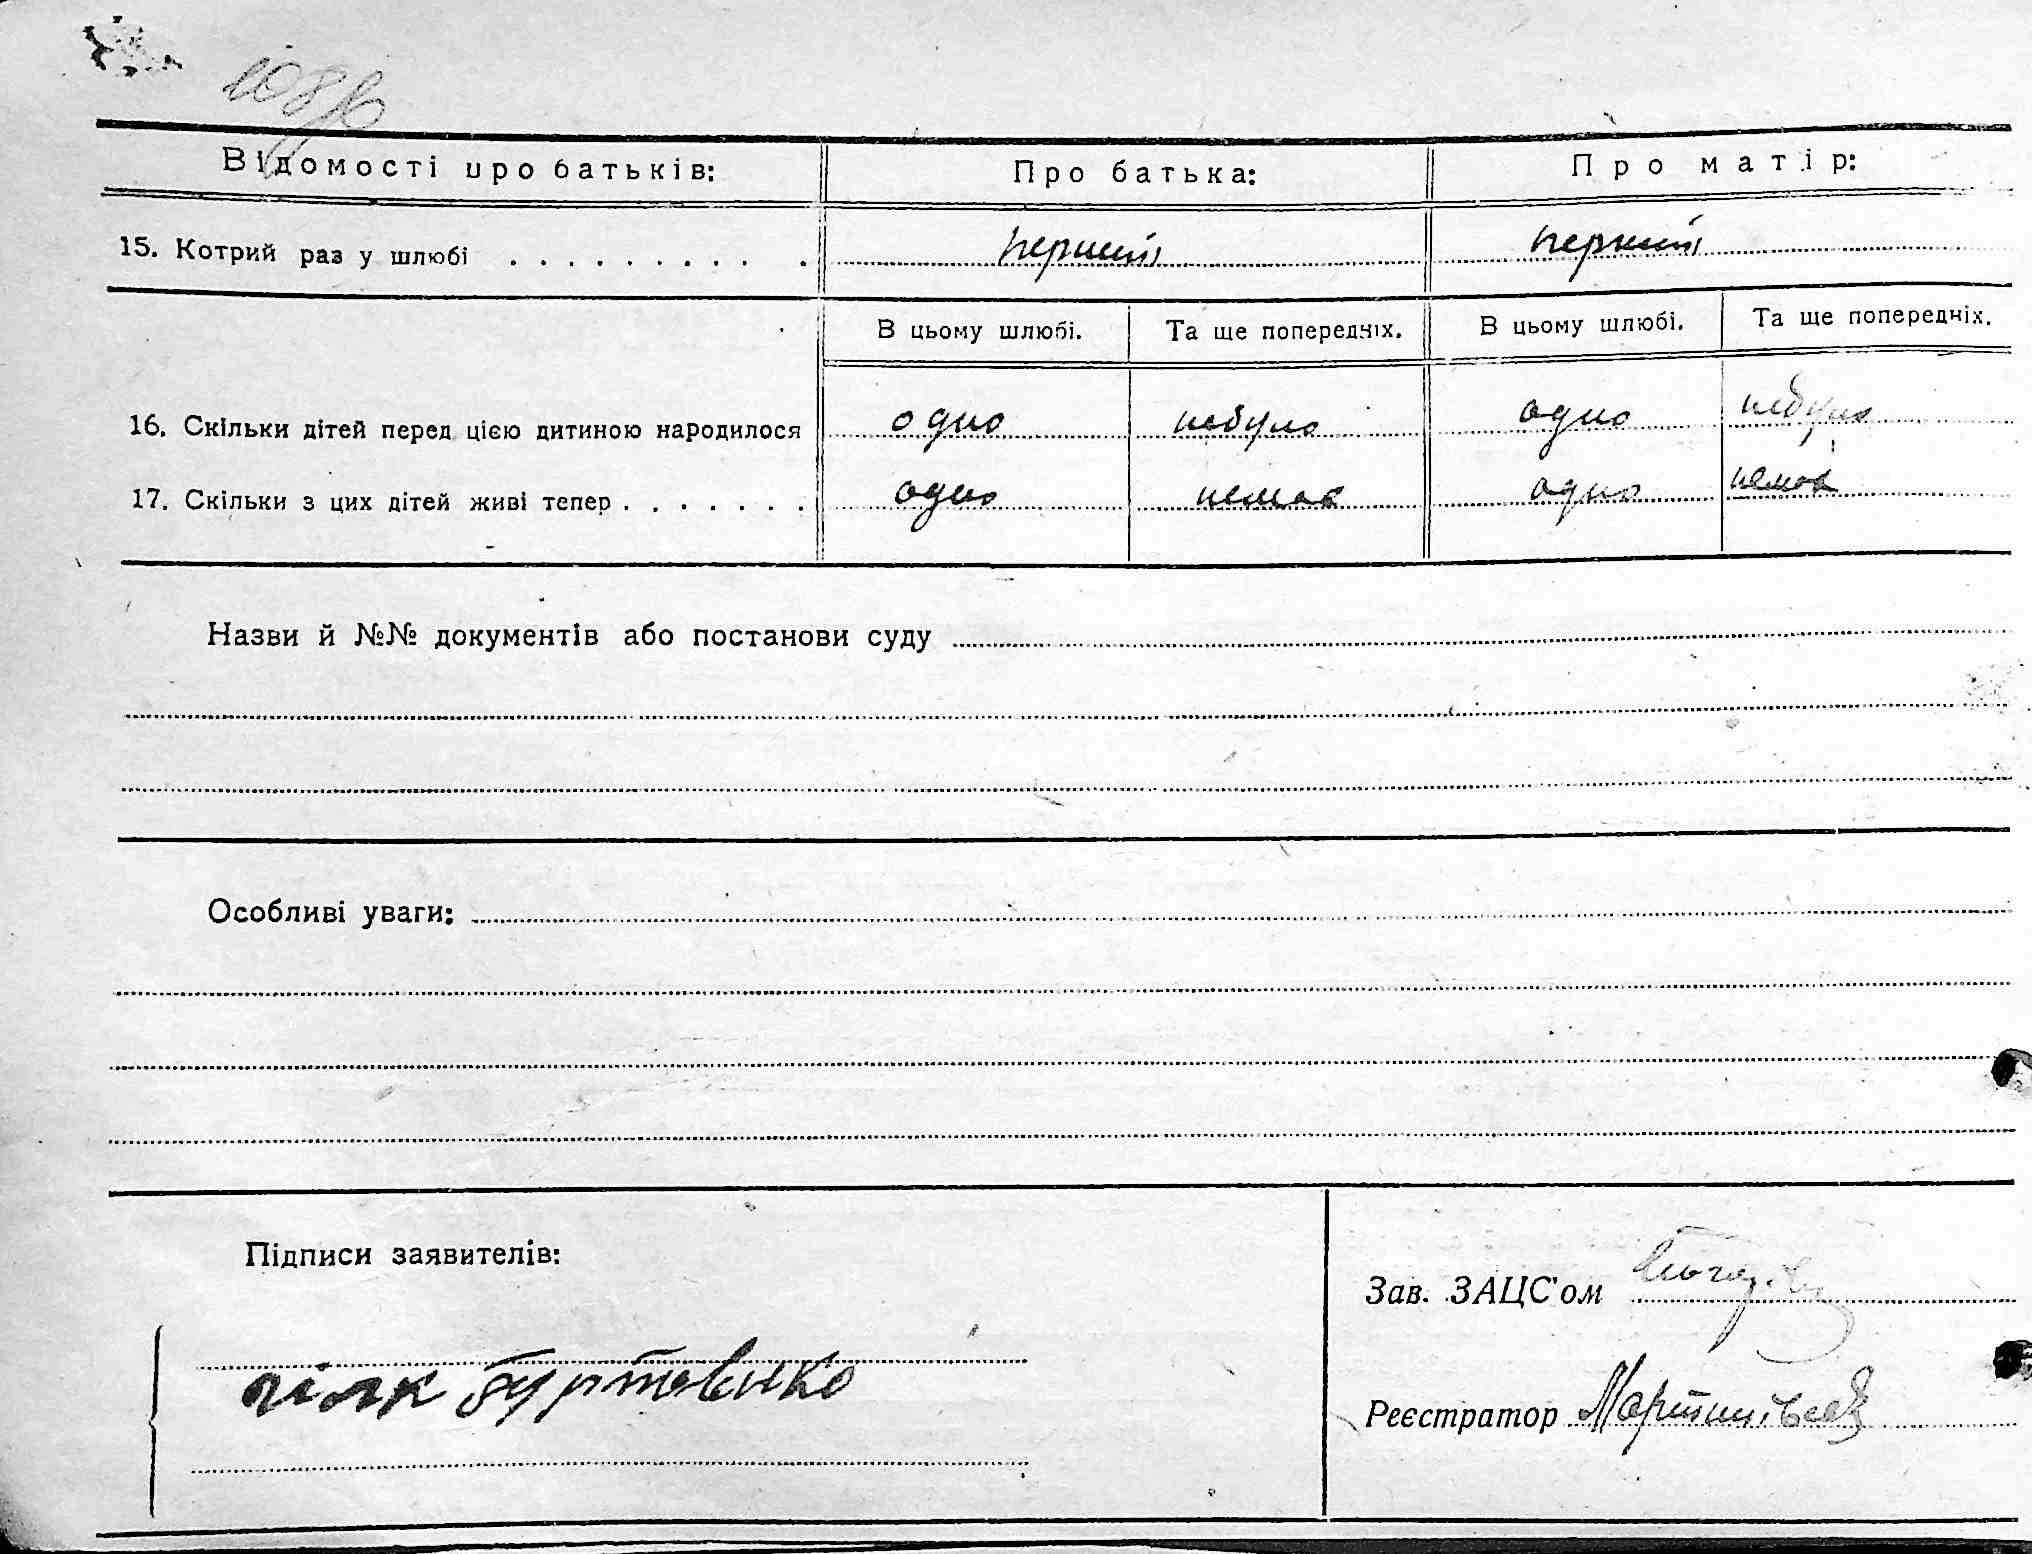 Відомості про батьків: Про батька: Про матір:
15. Котрий раз у шлюбі . . . . . . . . . . . перший перший
В цьому шлюбі. Та ще попередніх. В цьому шлюбі. Та ще попередніх.
16. Скільки дітей перед цією дитиною народилося одно небуло одно небуло
17. Скільки з цих дітей живі тепер . . . . . . . одно немає одно немає
Назви й №№ документів або постанови суду
Особливі уваги:
Підписи заявителів:
Зав. ЗАЦС'ом
Реєстратор